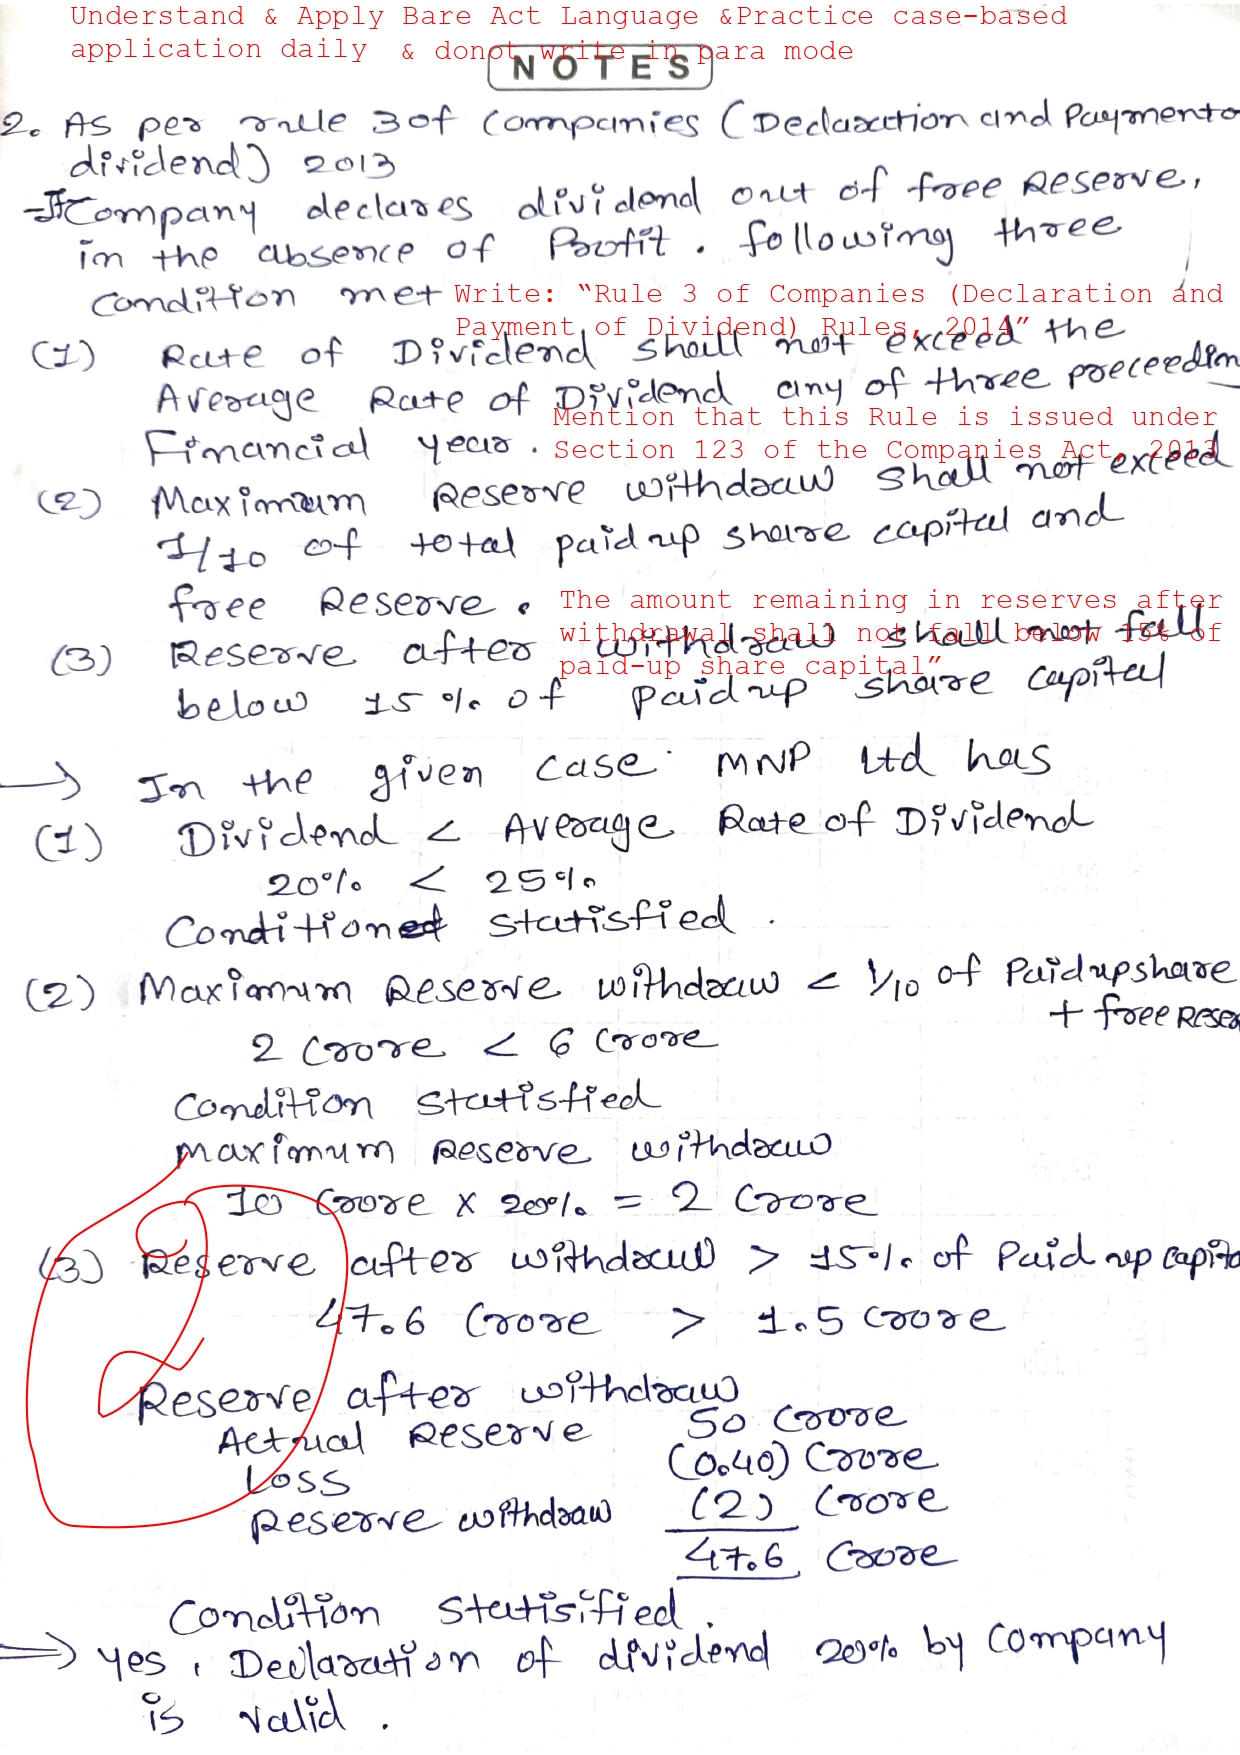 Understand & Apply Bare Act Language &Practice case-based
application daily & donot write in para mode
NOTES
2. As per rule 3 of Companies (Declaration and Payment o
dividend) 2013
- If Company declares dividend out of free Reserve,
in the absence of Profit. following three
condition met
Write: “Rule 3 of Companies (Declaration and
Payment of Dividend) Rules, 2014”
(1) Rate of Dividend shall not exceed the
Average Rate of Dividend any of three preceedin
Financial year.
Mention that this Rule is issued under
Section 123 of the Companies Act, 2013
(2) Maximum Reserve withdraw shall not exceed
1/10 of total paid up share capital and
free Reserve.
The amount remaining in reserves after
withdrawal shall not fall below 15% of
paid-up share capital”
(3) Reserve after withdraw shall not fall
below 15% of paid up share capital
→ In the given case MNP Ltd has
(1) Dividend < Average Rate of Dividend
20% < 25%
Condition statisfied.
(2) Maximum Reserve withdraw < 1/10 of Paid up share
+ free Reser
2 Crore < 6 Crore
Condition statisfied
Maximum Reserve withdraw
10 Crore x 20% = 2 Crore
(3) Reserve after withdraw > 15% of Paid up capita
47.6 Crore > 1.5 Crore
2
Reserve after withdraw
Actual Reserve 50 Crore
Loss (0.40) Crore
Reserve withdraw (2) Crore
47.6 Crore
Condition statisified.
⇒ yes, Declaration of dividend 20% by Company
is valid.